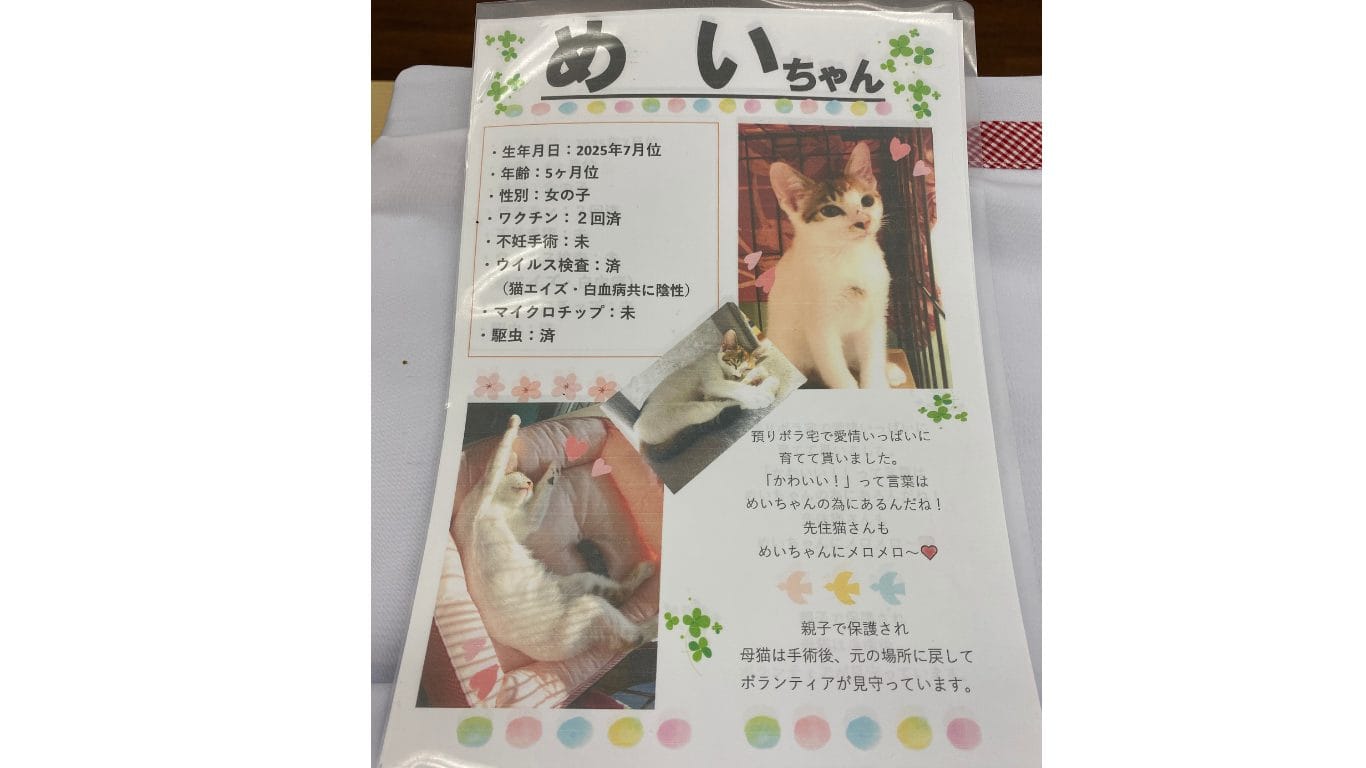 めいちゃん
・生年月日：2025年7月位
・年齢：5ヶ月位
・性別：女の子
・ワクチン：２回済
・不妊手術：未
・ウイルス検査：済
（猫エイズ・白血病共に陰性）
・マイクロチップ：未
・駆虫：済
預りボラ宅で愛情いっぱいに
育てて貰いました。
「かわいい！」って言葉は
めいちゃんの為にあるんだね！
先住猫さんも
めいちゃんにメロメロ～❤
親子で保護され
母猫は手術後、元の場所に戻して
ボランティアが見守っています。